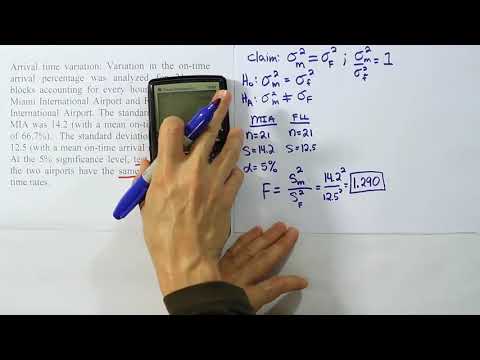 Arrival time variation: Variation in the on-time
arrival percentage was analyzed
blocks accounting for every hour
Miami International Airport and F
International Airport. The standar
MIA was 14.2 (with a mean on-
of 66.7%). The standard deviation
12.5 (with a mean on-time arrival
At the 5% significance level,
the two airports have the same
time rates.
Claim: σ²m = σ²F ; σ²m/σ²f = 1
H₀: σ²m = σ²f
HA: σ²m ≠ σF
MIA FLL
n=21 n=21
S=14.2 S=12.5
α=5%
F = S²m/S²F = 14.2²/12.5² = 1.290